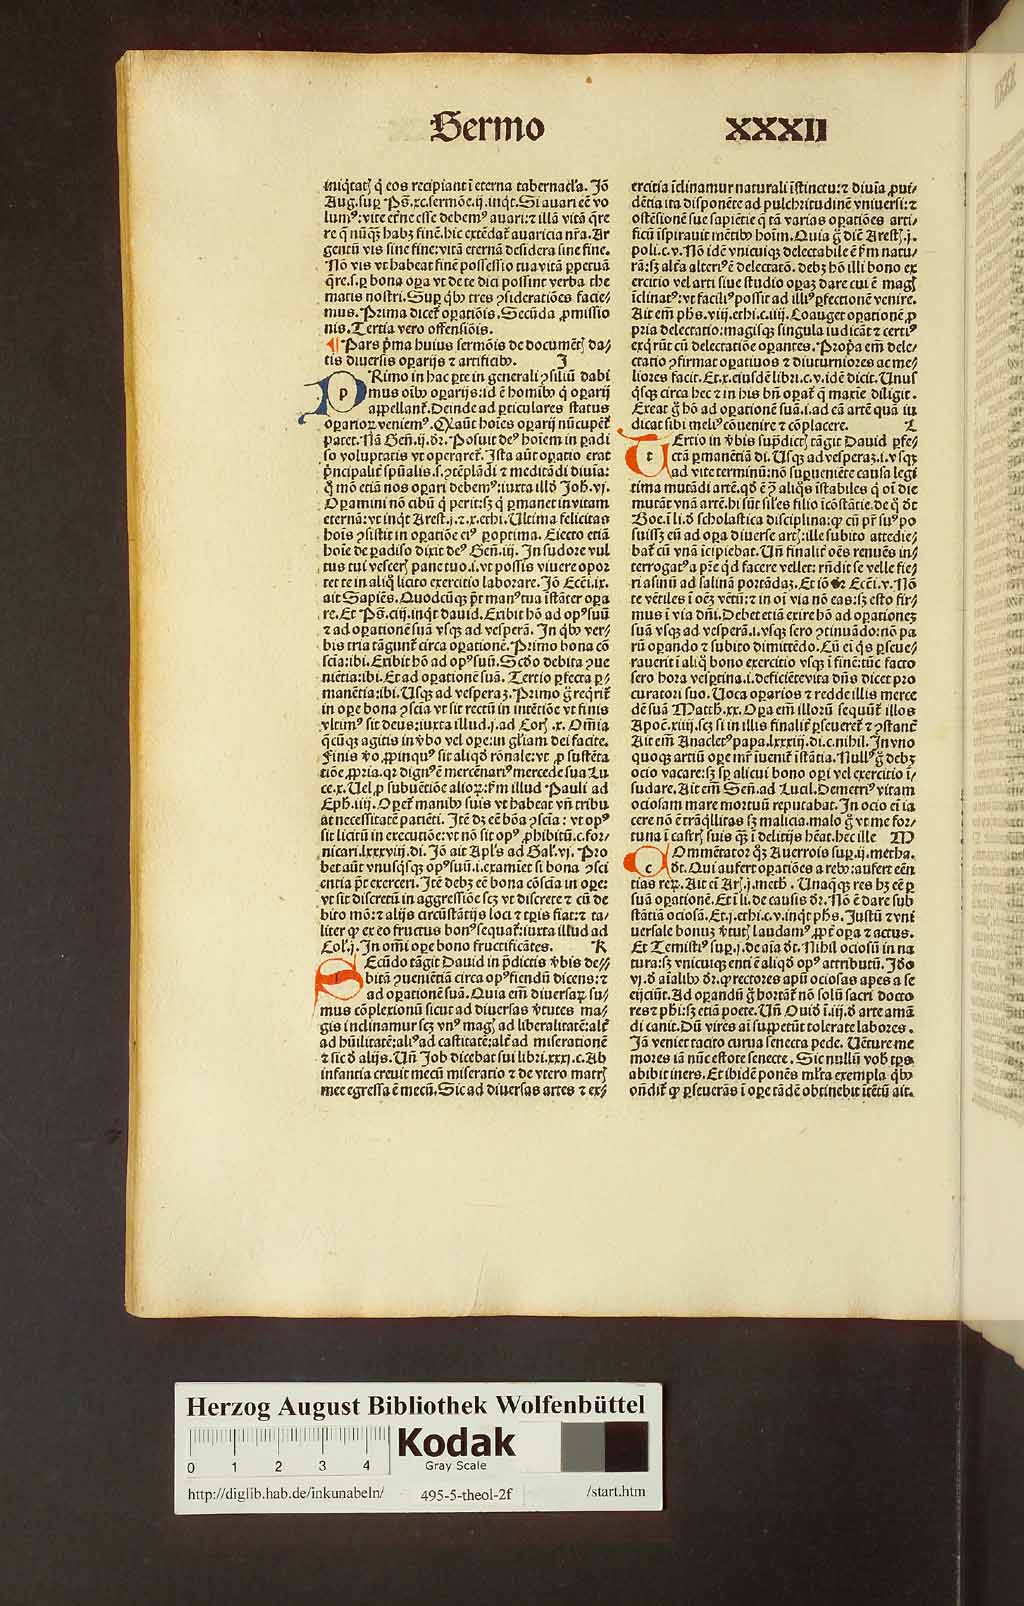 Sermo XXXII
iniq̄tatꝭ q̄ eos recipiant ī eterna tabernac̄la. Jō
Aug. suꝑ Ps̄. xc. sermōe. ij. inq̇t. Si auari eē vo
lumꝰ: vite et̄ne esse debemꝰ auari: ⁊ illā vitā q̄re
re q̄ nūqꝫ habꝫ finē. hic extēdat̄ auaricia nr̄a. Ar
gentū vis sine fine: vitā eternā desidera sine fine.
Nō vis vt habeat finē possessio tua vitā ꝑpetuā
q̄re. s. ꝑ bona oꝑa vt de te dici possint verba the
matis nostri. Suꝑ qͥbꝰ tres ꝯsideratiōes facie⸗
mus. Prima dicet̄ oꝑatiōis. Secūda ꝓmissio
nis. Tertia vero offensiōis.
¶ Pars pͥma huius sermōis de documētꝭ da⸗
tis diuersis oꝑarijs ⁊ artificibꝰ. I
PRimo in hac ꝑte in generali ꝯsiliū dabi
mus oībꝰ oꝑarijs: id ē homībꝰ q̄ oꝑarij
appellant̄. Deinde ad ꝑticulares status
oꝑarioꝝ veniemꝰ. Q̇ aūt hoīes oꝑarij nūcupēt̄
patet. Nā Geñ. ij. dr̄. Posuit deꝰ hoīem in ꝑadi
so voluptatis vt operaret̄. Ista aūt oꝑatio erat
pͥncipalit̄ spūalis. s. ꝯtēplādi ⁊ meditādi diuīa:
q̊ mō etiā nos oꝑari debemꝰ: iuxta illd̓ Joh̄. vj.
Oꝑamini nō cibū q̇ perit: sꝫ q̇ ꝑmanet in vitam
eternā: vt inq̇t Arest. j. ⁊. x. ethi. Ultima felicitas
hois ꝯsistit in oꝑatiōe eiꝰ ꝑoptima. Eiecto etiā
hoīe de ꝑadiso dixit deꝰ Geñ. iij. In sudore vul
tus tui vescerꝭ pane tuo. i. vt possis viuere opor
tet te in aliq̊ licito exercitio laborare. Jō Ecc̄i. ix.
ait Sapiēs. Quodcūqꝫ pt̄ manꝰ tua īstāter oꝑa
re. Et Ps̄. ciij. inq̇t dauid. Exibit hō ad opꝰ suū
⁊ ad oꝑationē suā vsqꝫ ad vesperā. In qͥbꝰ ver⸗
bis tria tāgunt̄ circa oꝑationē. Primo bona cō
scīa: ibi. Exibit hō ad opꝰ suū. Scd̓o debita ꝯue
niētia: ibi. Et ad oꝑationē suā. Tertio ꝑfecta ꝑ⸗
manētia: ibi. Usqꝫ ad vesperaꝫ. Primo g̊ reqͥrit̄
in ope bona ꝯscīa vt sit rectū in intētiōe vt finis
vltimꝰ sit deus: iuxta illud. j. ad Corꝭ. x. Om̄ia
q̄cūqꝫ agitis in v̓bo vel ope: in gl̄iam dei facite.
Finis v̓o ꝓpinquꝰ sit aliqd̓ rōnale: vt ꝓ sustēta
tiōe ꝓpria. qꝛ dignꝰ ē mercēnariꝰ mercede sua Lu
ce. x. Uel ꝓ subuētiōe alioꝝ: ẜm illud Pauli ad
Eph̄. iiij. Oꝑet̄ manibꝰ suis vt habeat vn̄ tribu
at necessitatē patiēti. Itē dꝫ eē bōa ꝯscīa: vt opꝰ
sit licitū in executiōe: vt nō sit opꝰ ꝓhibitū. c. for⸗
nicari. lxxxviij. di. Jō ait Apl̄s ad Gal̓. vj. Pro
bet aūt vnusqͥsqꝫ opꝰ suū. i. examīet si bona ꝯsci
entia pt̄ exerceri. Itē debꝫ eē bona cōscīa in ope:
vt sit discretū in aggressiōe scꝫ vt discrete ⁊ cū de
bito mō: ⁊ alijs circūstātijs loci ⁊ tꝑis fiat: ⁊ ta⸗
liter ꝙ ex eo fructus bonꝰ sequat̄: iuxta illud ad
Col̓. j. In om̄i ope bono fructificātes. K
SEcūdo tāgit Dauid in p̄dictis v̓bis de⸗
bitā ꝯuenietiā circa opꝰ fiendū dicens: ⁊
ad oꝑationē suā. Quia em̄ diuersaꝝ su⸗
mus cōplexionū sicut ad diuersas v̓tutes ma⸗
gis inclinamur scꝫ vnꝰ magꝭ ad liberalitatē: alt̓
ad hūilitatē: aliꝰ ad castitatē: alt̓ ad miserationē
⁊ sic d̓ alijs. Un̄ Job dicebat sui libri. xxxi. c. Ab
infantia creuit mecū miseratio ⁊ de vtero matrꝭ
mee egressa ē mecū. Sic ad diuersas artes ⁊ ex⸗
ercitia īclinamur naturali īstinctu: ⁊ diuīa ꝓui⸗
dētia ita disponēte ad pulchritudinē vniuersi: ⁊
ostēsionē sue sapiētie q̄ tā varias oꝑatiōes arti⸗
ficū īspirauit mētibꝰ hoīm. Quia g̊ diē Arestꝭ. j.
poli. c. v. Nō idē vnicuiqꝫ delectabile ē ẜm natu⸗
rā: sꝫ alt̓a alteriꝰ ē delectatō. debꝫ hō illi bono ex
ercitio vel arti siue studio oꝑaꝫ dare cui ē magꝭ
īclinatꝰ: vt faciliꝰ possit ad illiꝰ ꝑfectionē venire.
Ait em̄ ph̄s. viij. ethi. c. iiij. Coauget oꝑationē ꝓ
pria delectatio: magisqꝫ singula iudicāt ⁊ certiꝰ
exq̇rūt cū delectatiōe oꝑantes. Prop̓a em̄ dele⸗
ctatio ꝯfirmat oꝑatiuos ⁊ diuturniores ac me⸗
liores facit. Et. x. eiusdē libri. c. v. idē dicit. Unusꝰ
qͥsqꝫ circa hec ⁊ in his bn̄ oꝑat̄ q̄ maxīe diligit.
Exeat g̊ hō ad oꝑationē suā. i. ad eā artē quā iu
dicat sibi meliꝰ cōuenire ⁊ cōplacere. L
TErtio in v̓bis sup̄dictꝭ tāgit Dauid ꝑfe⸗
ctā ꝑmanētiā di. Usqꝫ ad vesperaꝫ. i. vsqꝫ
ad vite terminū: nō suꝑueniēte causa legi
tima mutādi artē. qd̓ ē ꝯͣ aliq̊s īstabiles q̇ oī die
mutāt vnā artē. hi sūt sil̓es filio īcōstātie. de q̊ d̓t
Boe. ī li. d̓ scholastica disciplina: ꝙ cū pr̄ suꝰ po
suissꝫ eū ad oꝑa diuerse artꝭ: ille subito attedie⸗
bat̄ cū vnā īcipiebat. Un̄ finalit̓ oēs renuēs in⸗
terrogatꝰ a pr̄e qd̓ facere vellet: rn̄dit se velle fie⸗
ri asinū ad salinā portādaꝫ. Et iō Ecc̄i. v. Nō
te vētiles ī oēꝫ vētū: ⁊ in oī via nō eas: sꝫ esto fir⸗
mus ī via dn̄i. Debet etiā exire hō ad oꝑationeꝫ
suā vsqꝫ ad vesperā. i. vsqꝫ sero ꝯtinuādo: nō pa
rū oꝑando ⁊ subito dimittēdo. Cū ei q̇s ꝑseue⸗
rauerit ī aliq̊ bono exercitio vsqꝫ ī finē: tūc facto
sero hora vesꝑtina. i. deficiēte vita dn̄s dicet pro
curatori suo. Uoca oꝑarios ⁊ redde illis merce
dē suā Matth̄. xx. Oꝑa em̄ illorū sequūt̄ illos
Apoc̄. xiiij. scꝫ si in illis finalit̓ ꝑseueret̄ ⁊ ꝯstant̓
Ait em̄ Anacletꝰ papa. lxxxiij. di. c. nihil. In vno
quoqꝫ artiū ope mr̄ iuenit̄ īstātia. Nullꝰ g̊ debꝫ
ocio vacare: sꝫ sp̄ alicui bono opi vel exercitio ī⸗
sudare. Ait em̄ Señ. ad Lucil̓. Demetriꝰ vitam
ociosam mare mortuū reputabat. In ocio ei ia
cere nō ē trāq̇llitas sꝫ malicia. malo g̊ vt me for⸗
tuna ī castrꝭ suis qꝫ ī delitijs hēat. hec ille M
COmmētator q̊ꝫ Auerrois suꝑ. ij. metha.
d̓t. Qui aufert oꝑatiōes a rebꝰ: aufert eēn
tias reꝝ. Ait ei Arꝭ. j. meth̄. Unaqꝫqꝫ res hꝫ eē ꝑ
suā oꝑationē. Et ī li. de causis dr̄. Nō ē dare sub
stātiā ociosā. Et. j. ethi. c. v. inq̇t ph̄s. Justū ⁊ vni
uersale bonuꝫ v̓tutꝭ laudamꝰ ꝓpt̓ oꝑa ⁊ actus.
Et Temistiꝰ suꝑ. j. de aīa d̓t. Nihil ociosū in na
tura: sꝫ vnicuiqꝫ enti ē aliqd̓ opꝰ attributū. Jd̓o
vj. d̓ aīalibꝰ dr̄. ꝙ rectores apū ociosas apes a se
eijciūt. Ad oꝑandū g̊ hortāt̄ nō solū sacri docto
res ⁊ ph̄i: sꝫ etiā poete. Un̄ Ouid̓ ī. iij. d̓ arte amā
di canit. Dū vires āi suꝑpetūt tolerate labores.
Jā veniet tacito curua senecta pede. Uēture me⸗
mores iā nūc estote senecte. Sic nullū vob̄ tp̄s
abibit iners. Et ibidē ponēs ml̓ta exempla qͥbꝰ
ondit̄ ꝙ ꝑseuerās ī ope tādē obtinebit itētū ait.
Herzog August Bibliothek Wolfenbüttel
0 1 2 3 4
Kodak
Gray Scale
http://diglib.hab.de/inkunabeln/ 495-5-theol-2f /start.htm